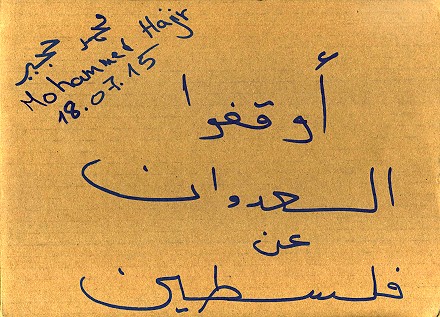 محمد حجيج
Mohammed Hajjr
18.07.15
أوقفوا
العدوان
عن
فلسطين